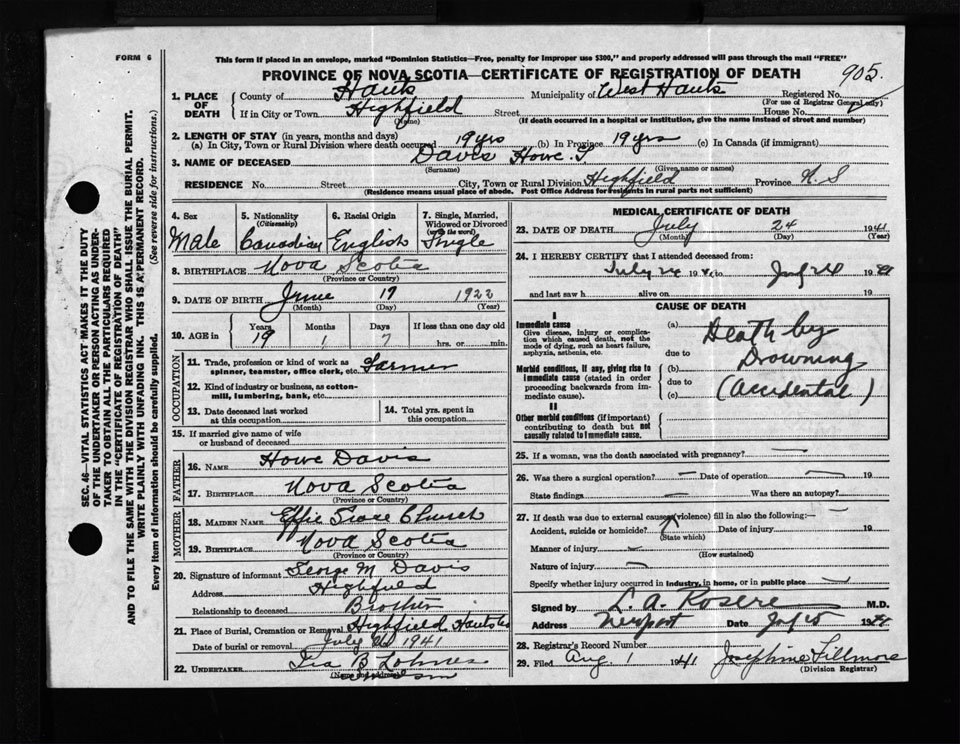 FORM 6
This form if placed in an envelope, marked "Dominion Statistics—Free, penalty for improper use $300," and properly addressed will pass through the mail "FREE"
PROVINCE OF NOVA SCOTIA—CERTIFICATE OF REGISTRATION OF DEATH
905.
1. PLACE OF DEATH
County of Hants Municipality of West Hants Registered No.
(For use of Registrar General only)
If in City or Town Highfield Street House No.
(Name) (If death occurred in a hospital or institution, give the name instead of street and number)
2. LENGTH OF STAY (in years, months and days)
(a) In City, Town or Rural Division where death occurred 19 yrs (b) In Province 19 yrs (c) In Canada (if immigrant)
3. NAME OF DECEASED Davis Howe
(Surname) (Given name or names)
RESIDENCE No. Street City, Town or Rural Division Highfield Province N.S
(Residence means usual place of abode. Post Office Address for residents in rural parts not sufficient)
SEC. 46—VITAL STATISTICS ACT MAKES IT THE DUTY
OF THE UNDERTAKER OR PERSON ACTING AS UNDER-
TAKER TO OBTAIN ALL THE PARTICULARS REQUIRED
IN THE "CERTIFICATE OF REGISTRATION OF DEATH"
AND TO FILE THE SAME WITH THE DIVISION REGISTRAR WHO SHALL ISSUE THE BURIAL PERMIT.
WRITE PLAINLY WITH UNFADING INK. THIS IS A PERMANENT RECORD.
Every item of Information should be carefully supplied. (See reverse side for instructions.)
4. Sex
Male
5. Nationality
(Citizenship)
Canadian
6. Racial Origin
English
7. Single, Married,
Widowed or Divorced
(write the word)
Single
8. BIRTHPLACE Nova Scotia
(Province or Country)
9. DATE OF BIRTH June 17 1922
(Month) (Day) (Year)
10. AGE in
Years Months Days If less than one day old
19 1 7 hrs. or min.
OCCUPATION
11. Trade, profession or kind of work as
spinner, teamster, office clerk, etc. Farmer
12. Kind of industry or business, as cotton-
mill, lumbering, bank, etc.
13. Date deceased last worked
at this occupation
14. Total yrs. spent in
this occupation
15. If married give name of wife
or husband of deceased
FATHER
16. NAME Howe Davis
17. BIRTHPLACE Nova Scotia
(Province or Country)
MOTHER
18. MAIDEN NAME Effie Church
19. BIRTHPLACE Nova Scotia
(Province or Country)
20. Signature of informant George M Davis
Address Highfield
Relationship to deceased Brother
21. Place of Burial, Cremation or Removal Highfield Hants Co
Date of burial or removal July 1941
22. UNDERTAKER Ira B Lohnes
(Name and address)
MEDICAL CERTIFICATE OF DEATH
23. DATE OF DEATH July 24 1941
(Month) (Day) (Year)
24. I HEREBY CERTIFY that I attended deceased from:
July 24 19 to 24 19
and last saw h alive on 19
CAUSE OF DEATH
I
Immediate cause
Give disease, injury or complica-
tion which caused death, not the
mode of dying, such as heart failure,
asphyxia, asthenia, etc.
Morbid conditions, if any, giving rise to
immediate cause (stated in order
proceeding backwards from im-
mediate cause).
II
Other morbid conditions (if important)
contributing to death but not
causally related to immediate cause.
(a) Death by
due to
(b) Drowning
due to
(c) (Accidental)
25. If a woman, was the death associated with pregnancy? —
26. Was there a surgical operation? — Date of operation — 19
State findings — Was there an autopsy? —
27. If death was due to external causes (violence) fill in also the following:
Accident, suicide or homicide? Date of injury 19
(State which)
Manner of injury
(How sustained)
Nature of injury —
Specify whether injury occurred in industry, in home, or in public place —
Signed by L. A. Rosere M.D.
Address Newport Date 19
28. Registrar's Record Number
29. Filed Aug. 1 1941 Josephine Fillmore
(Division Registrar)